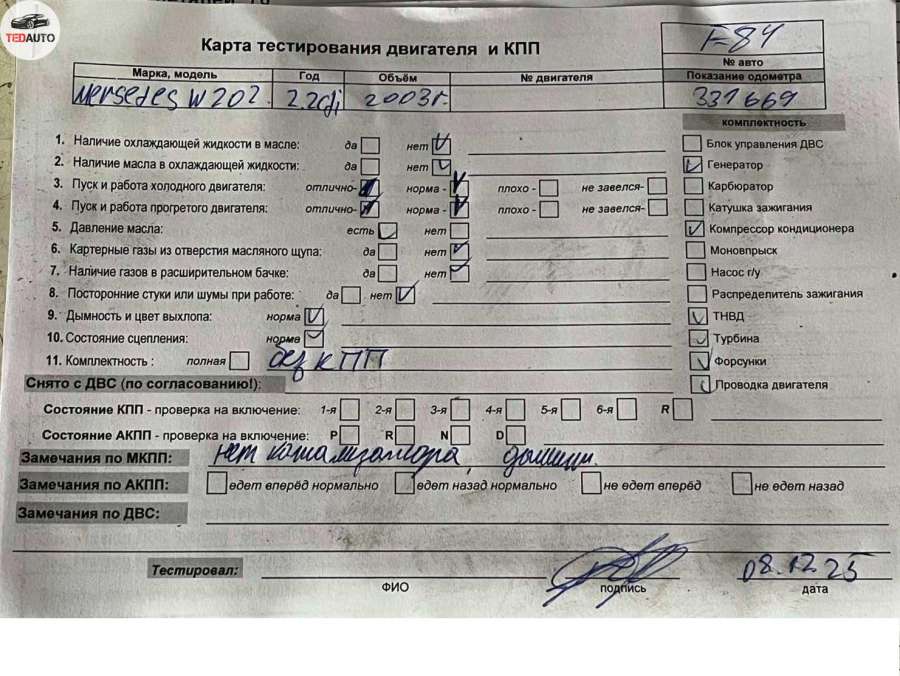 TEDAUTO
F-84
Карта тестирования двигателя и КПП
№ авто
Марка, модель Год Объём № двигателя Показание одометра
Mersedes W202. 2.2cdi 2003г. 331669
комплектность
1. Наличие охлаждающей жидкости в масле: да нет Блок управления ДВС
2. Наличие масла в охлаждающей жидкости: да нет Генератор
3. Пуск и работа холодного двигателя: отлично- норма - плохо - не завелся- Карбюратор
4. Пуск и работа прогретого двигателя: отлично- норма - плохо - не завелся- Катушка зажигания
5. Давление масла: есть нет Компрессор кондиционера
6. Картерные газы из отверстия масляного щупа: да нет Моновпрыск
7. Наличие газов в расширительном бачке: да нет Насос г/у
8. Посторонние стуки или шумы при работе: да нет Распределитель зажигания
9. Дымность и цвет выхлопа: норма ТНВД
10. Состояние сцепления: норма Турбина
11. Комплектность : полная без КПП Форсунки
Снято с ДВС (по согласованию!): Проводка двигателя
Состояние КПП - проверка на включение: 1-я 2-я 3-я 4-я 5-я 6-я R
Состояние АКПП - проверка на включение: P R N D
Замечания по МКПП: нет катализатора,
Замечания по АКПП: едет вперёд нормально едет назад нормально не едет вперёд не едет назад
Замечания по ДВС:
Тестировал: 08.12.25
ФИО подпись дата